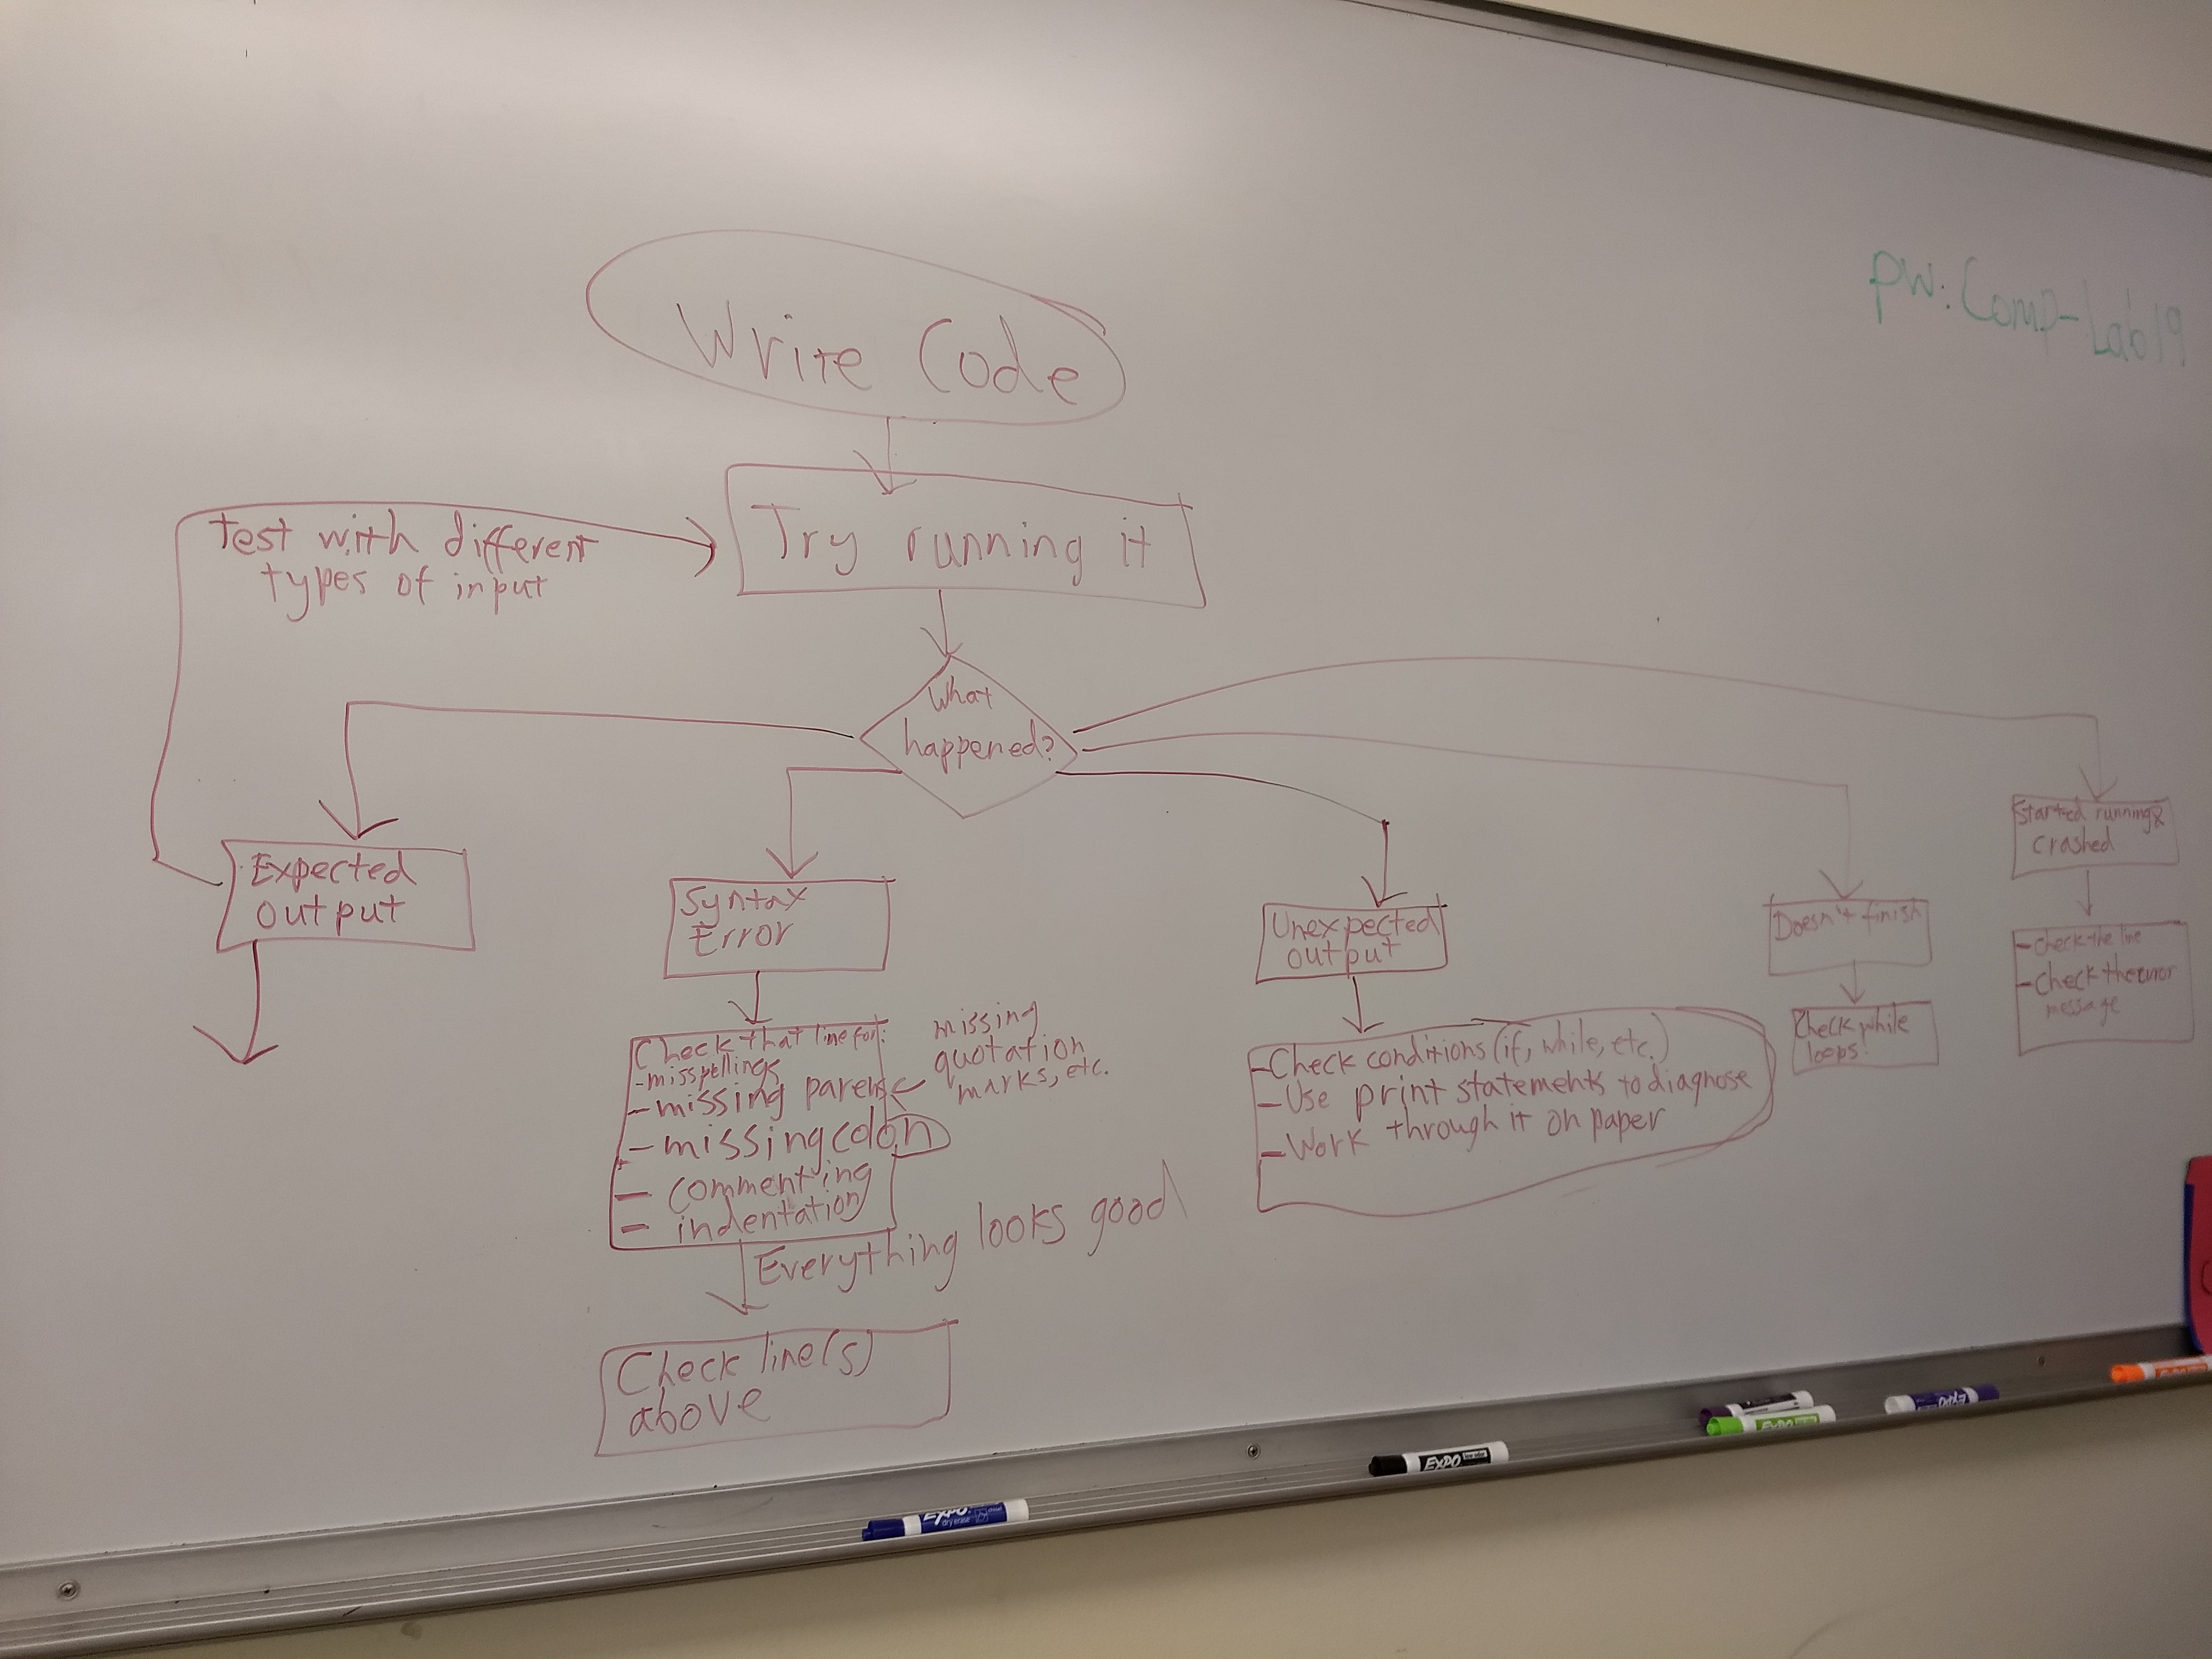 Write Code
pw: Comp-Lab19
Try running it
test with different
types of input
What
happened?
Expected
output
Syntax
Error
Check that line for:
-misspellings
-missing parens
-missing colon
- commenting
- indentation
missing
quotation
marks, etc.
Everything looks good
Check line(s)
above
Unexpected
output
-Check conditions (if, while, etc.)
-Use print statements to diagnose
-Work through it on paper
Doesn't finish
Check while
loops!
Started running &
crashed
-check the line
-check the error
message
EXPO
EXPO
dry erase
EXPO
EXPO